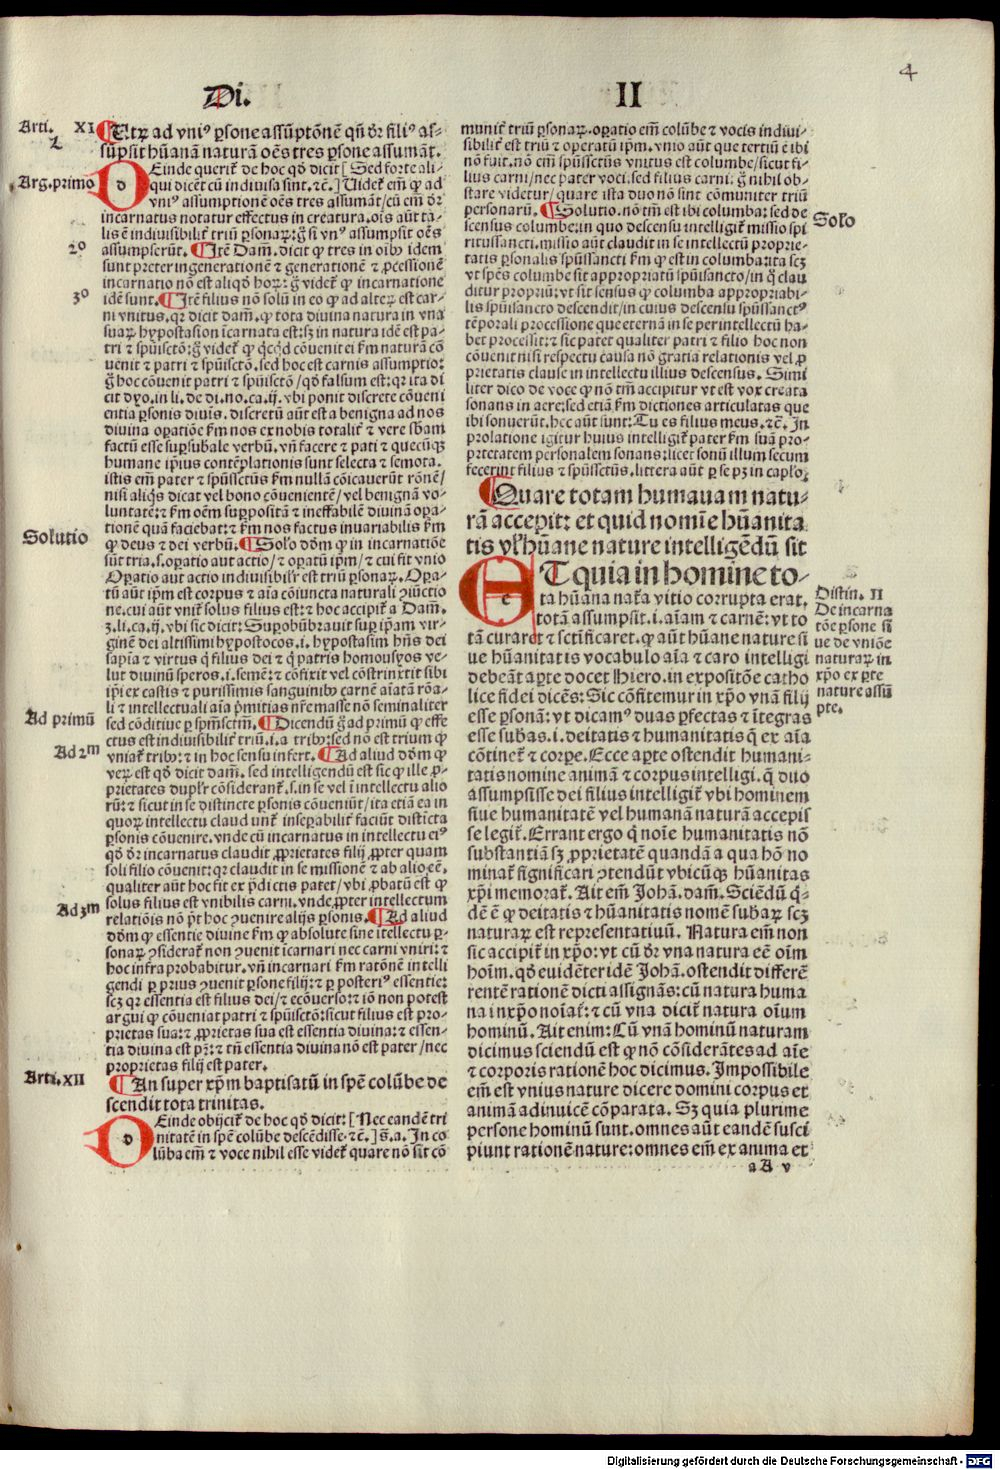 4
Di. II
Arti. XI
2
Arg. primo
2º
3º
Solutio
Ad primũ
Ad 2m
Ad 3m
Arti. XII
¶ Utrũ ad vniꝰ ꝑsone assũptõnẽ qñ dr̃ filiꝰ as⸗
sũpsit hũanã naturã oẽs tres ꝑsone assumãt.
DEinde querit̃ de hoc qđ dicit [Sed forte ali⸗
qui dicẽt cũ indiuisa sint. ⁊c̃.] Uidet̃ em̃ ꝙ ad
vniꝰ assumptionẽ oẽs tres assumãt/cũ em̃ dr̃
incarnatus notatur effectus in creatura. oĩs aũt ta⸗
lis ẽ indiuisibilit̃ triũ ꝑsonaꝝ: g̃ si vnꝰ assumpsit oẽs
assumpserũt. ¶ Itẽ Dam̃. dicit ꝙ tres in oĩbꝰ idem
sunt preter ingenerationẽ ⁊ generationẽ ⁊ ꝓcessionẽ
incarnatio nõ est aliqđ hoꝝ: g̃ videt̃ ꝙ incarnatione
idẽ sunt. ¶ Itẽ filius nõ solũ in eo ꝙ ad alteꝝ est car⸗
ni vnitus. qꝛ dicit dam̃. ꝙ tota diuina natura in vna
suaꝝ hypostasion ĩcarnata est: sꝫ in natura idẽ est pa⸗
tri ⁊ spũisctõ: g̃ videt̃ ꝙ qͥcqͥd cõuenit ei ẜm naturã cõ
uenit ⁊ patri ⁊ spũisctõ. sed hoc est carnis assumptio:
g̃ hoc cõuenit patri ⁊ spũisctõ/qđ falsum est: qꝛ ita di
cit dyo. in li. de di. no. ca. ij. vbi ponit discrete cõueni
entia ꝑsonis diuĩs. discretũ aũt est a benigna ad nos
diuina oꝑatiõe ẜm nos ex nobis totalit̃ ⁊ vere sb̃am
factũ esse suꝑsub̃ale verbũ. vñ facere ⁊ pati ⁊ quecũqꝫ
humane ip̃ius contẽplationis sunt selecta ⁊ semota.
istis em̃ pater ⁊ spũssctũs ẜm nullã cõicauerũt rõnẽ/
nisi aliqͥs dicat vel bono cõuenientẽ/vel benignã vo⸗
luntatẽ: ⁊ ẜm oẽm suꝑpositã ⁊ ineffabilẽ diuinã oꝑa⸗
tionẽ quã faciebat: ⁊ ẜm nos factus inuariabilis ẜm
ꝙ deus ⁊ dei verbũ. ¶ Solo đõm ꝙ in incarnatiõe
sũt tria. s. oꝑatio aut actio/⁊ oꝑatũ ip̃m/⁊ cui fit vnio
Oꝑatio aut actio indiuisibilr̃ est triũ ꝑsonaꝝ. Oꝑa⸗
tũ aũt ip̃m est corpus ⁊ aĩa cõiuncta naturali ꝯiũctio
ne. cui aũt vnit̃ solus filius est: ⁊ hoc accipit̃ a Dam̃.
3. li. ca. ij. vbi sic dicit: Suꝑobũbrauit suꝑ ip̃am vir⸗
ginẽ dei altissimi hypostocos. i. hypostasim hñs dei
sap̃ia ⁊ virtus qͥ filius dei ⁊ qͥ patris homousyos ve⸗
lut diuinũ speros. i. semẽ: ⁊ cõfixit vel cõstrinxtit sibi
ip̃i ex castis ⁊ purissimis sanguinibꝰ carnẽ aĩatã rõa⸗
li ⁊ intellectuali aĩa pͥmitias nr̃e masse nõ seminaliter
sed cõditiue ꝑ spm̃sctm̃. ¶ Dicendũ g̃ ad primũ ꝙ effe
ctus est indiuisibilit̃ triũ. i. a tribꝰ: sed nõ est trium ꝙ
vniat̃ tribꝰ: ⁊ in hoc sensu infert. ¶ Ad aliud đõm ꝙ
veꝝ est qđ dicit dam̃. sed intelligendũ est sic ꝙ ille ꝓ⸗
prietates duplr̃ cõsiderant̃. s. in se vel ĩ intellectu alio
rũ: ⁊ sicut in se distincte ꝑsonis cõueniũt/ita etiã ea in
quoꝝ intellectu claud unt̃ inseꝑabilit̃ faciũt disticta
ꝑsonis cõuenire. vnde cũ incarnatus in intellectu eiꝰ
qđ dr̃ incarnatus claudit ꝓprietates filij ꝓpter quam
soli filio cõuenit: qꝛ claudit in se missionẽ ⁊ ab alio eẽ.
qualiter aũt hoc fit ex pͥdictis patet/vbi ꝓbatũ est ꝙ
solus filius est vnibilis carni. vnde ꝓpter intellectum
relatiõis nõ pt̃ hoc ꝯuenire alijs ꝑsonis. ¶ Ad aliud
đõm ꝙ essentie diuine ẜm ꝙ absolute sine ĩtellectu ꝑ⸗
sonaꝝ ꝯsiderat̃ non ꝯuenit ĩcarnari nec carni vniri: ⁊
hoc infra probabitur. vñ incarnari ẜm ratõnẽ intelli
gendi ꝑ prius ꝯuenit ꝑsone filij: ⁊ ꝑ posteriꝰ essentie:
scꝫ qꝛ essentia est filius dei/⁊ ecõuerso: ⁊ iõ non potest
argui ꝙ conueniat patri ⁊ spũisctõ: sicut filius est pro⸗
prietas sua: ⁊ ꝓprietas sua est essentia diuina: ⁊ essen⸗
tia diuina est pr̃: ⁊ tñ essentia diuina nõ est pater/nec
proprietas filij est pater.
¶ An super xp̃m baptisatũ in spẽ colũbe de
scendit tota trinitas.
DEinde obijcit̃ de hoc qđ dicit: [Nec eandẽ tri
nitatẽ in spẽ colũbe descẽdisse. ⁊c̃.] s̃. a. In co
lũba em̃ ⁊ voce nihil esse videt̃ quare nõ sit cõ
munit̃ triũ ꝑsonaꝝ. oꝑatio em̃ colũbe ⁊ vocis indiui⸗
sibilit̃ est triũ ⁊ operatũ ip̃m. vnio aũt que tertiũ ẽ ibi
nõ fuit. nõ em̃ spũssctũs vnitus est columbe/sicut fi⸗
lius carni/nec pater voci. sed filius carni. g̃ nihil ob⸗
stare videtur/quare ista duo nõ sint cõmuniter triũ
personarũ. ¶ Solutio. nõ tm̃ est ibi columba: sed de
scensus columbe: in quo descensu intelligit̃ missio spi
ritussancti. missio aũt claudit in se intellectũ proprie⸗
tatis ꝑsonalis spũssancti ẜm ꝙ est in columba: ita scꝫ
vt spẽs columbe sit appropriatũ spũisancto/in qͦ clau
ditur propriũ: vt sit sensus ꝙ columba appropriabi⸗
lis spũisancto descendit/in cuius descensu spũssanctꝰ
tẽporali processione que eternã in se per intellectũ ha⸗
bet processit: ⁊ sic patet qualiter patri ⁊ filio hoc non
cõuenit nisi respectu causa nõ gratia relationis vel ꝓ
prietatis clause in intellectu illius descensus. Simi
liter dico de voce ꝙ nõ tm̃ accipitur vt est vox creata
sonans in aere: sed etiã ẜm dictiones articulatas que
ibi sonuerũt. hec aũt sunt: Tu es filius meus. ⁊c̃. In
prolatione igitur huius intelligit̃ pater ẜm suã pro⸗
prietatem personalem sonans: licet sonũ illum secum
fecerint filius ⁊ spũssctũs. littera aũt ꝑ se pꝫ in caplo.
Solo
¶ Quare totam humauam natu⸗
rã accepit: et quid nomĩe hũanita
tis vl̃ hũane nature intelligẽdũ sit
ET quia in homine to⸗
ta hũana nat̃a vitio corrupta erat.
totã assumpsit. i. aĩam ⁊ carnẽ: vt to
tã curaret ⁊ sctificaret. ꝙ aũt hũane nature si
ue hũanitatis vocabulo aĩa ⁊ caro intelligi
debeãt aꝑte docet Hiero. in expositõe catho
lice fidei dicẽs: Sic cõfitemur in xp̃o vnã filij
esse ꝑsonã: vt dicamꝰ duas ꝑfectas ⁊ ĩtegras
esse sub̃as. i. deitatis ⁊ humanitatis q̃ ex aĩa
cõtinet̃ ⁊ corpe. Ecce aꝑte ostendit humani⸗
tatis nomine animã ⁊ corpus intelligi. q̃ duo
assumpsisse dei filius intelligit̃ vbi hominem
siue humanitatẽ vel humanã naturã accepis
se legit̃. Errant ergo qͥ noĩe humanitatis nõ
substantiã sꝫ ꝓprietatẽ quandã a qua hõ no
minat̃ significari ꝯtendũt vbicũqꝫ hũanitas
xp̃i memorat̃. Ait em̃ Johã. dam̃. Sciẽdũ q̃⸗
dẽ ẽ ꝙ deitatis ⁊ hũanitatis nomẽ sub̃aꝝ scꝫ
naturaꝝ est representatiuũ. Natura em̃ non
sic accipit̃ in xp̃o: vt cũ dr̃ vna natura eẽ oĩm
hoĩm. qđ euidẽter idẽ Johã. ostendit differẽ
rentẽ rationẽ dicti assignãs: cũ natura huma
na in xp̃o noĩat̃: ⁊ cũ vna dicit̃ natura oĩum
hominũ. Ait enim: Cũ vnã hominũ naturam
dicimus sciendũ est ꝙ nõ cõsiderãtes ad aĩe
⁊ corporis rationẽ hoc dicimus. Impossibile
em̃ est vnius nature dicere domini corpus et
animã adinuicẽ cõparata. Sꝫ quia plurime
persone hominũ sunt. omnes aũt eandẽ susci
piunt rationẽ nature: omnes em̃ ex anima et
Distin. II
De incarna
tõe ꝑsone fi
ue de vniõe
naturaꝝ in
xp̃o ex ꝑte
nature assũ
pte.
aA v
Digitalisierung gefördert durch die Deutsche Forschungsgemeinschaft - DFG